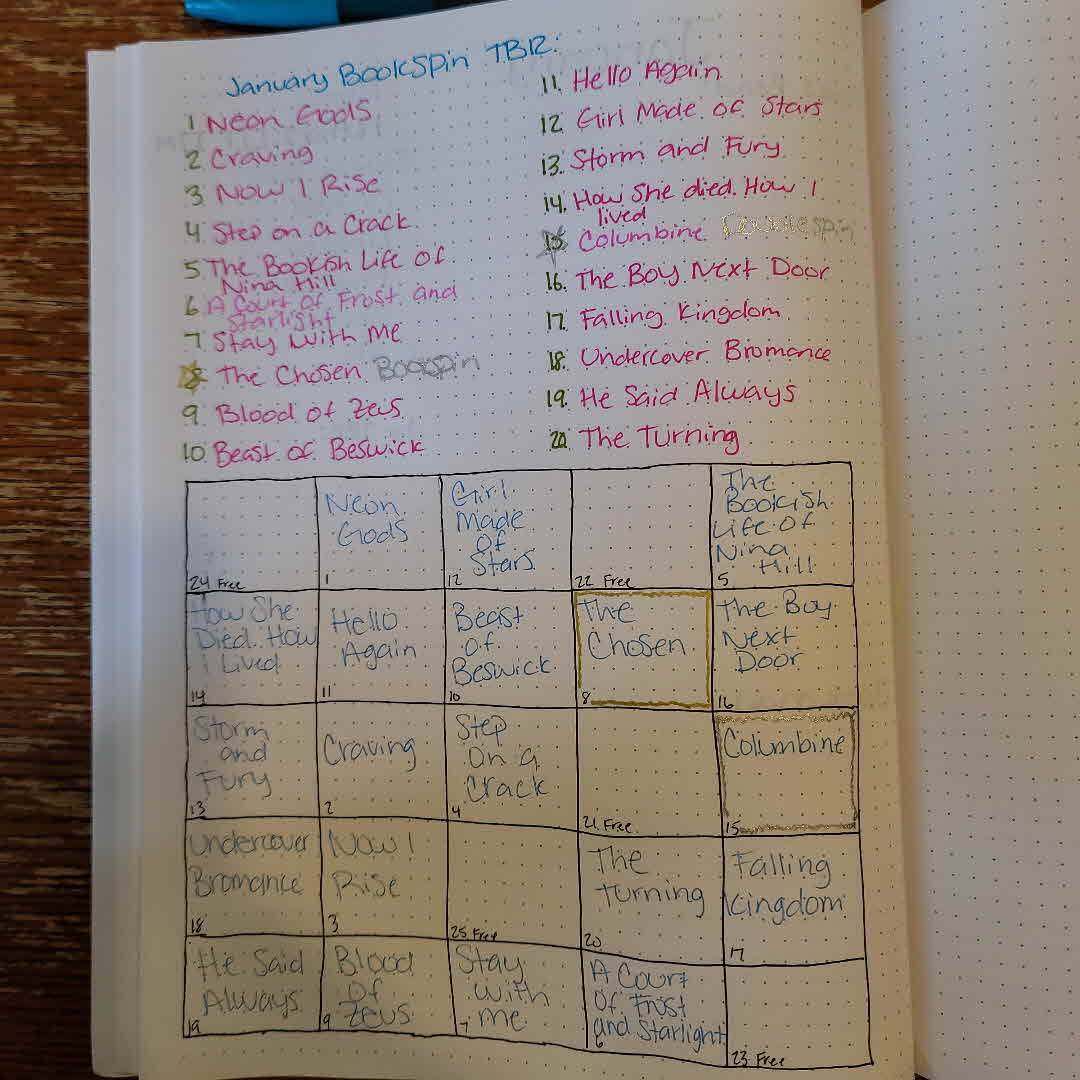 January BookSpin TBR:
1 Neon Gods
2 Craving
3 Now I Rise
4 Step on a Crack
5 The Bookish Life of
Nina Hill
6 A Court of Frost and
Starlight
7 Stay With Me
8 The Chosen Bookspin
9 Blood of Zeus
10 Beast of Beswick
11. Hello Again
12. Girl Made of Stars
13. Storm and Fury
14. How She died. How I
lived
15 Columbine Doublespin
16. The Boy Next Door
17. Falling Kingdom
18. Undercover Bromance
19. He Said Always
20. The Turning
24 Free
Neon
Gods
1
Girl
Made
Of
Stars
12
22 Free
The
Bookish
Life Of
Nina
Hill
5
How She
Died. How
I Lived
14
Hello
Again
11
Beast
Of
Beswick
10
The
Chosen
8
The Boy
Next
Door
16
Storm
and
Fury
13
Craving
2
Step
On a
Crack
4
21 Free
Columbine
15
Undercover
Bromance
18
Now I
Rise
3
25 Free
The
Turning
20
Falling
Kingdom
17
He Said
Always
19
Blood
Of
Zeus
9
Stay
with
me
7
A Court
Of Frost
and Starlight
6
23 Free